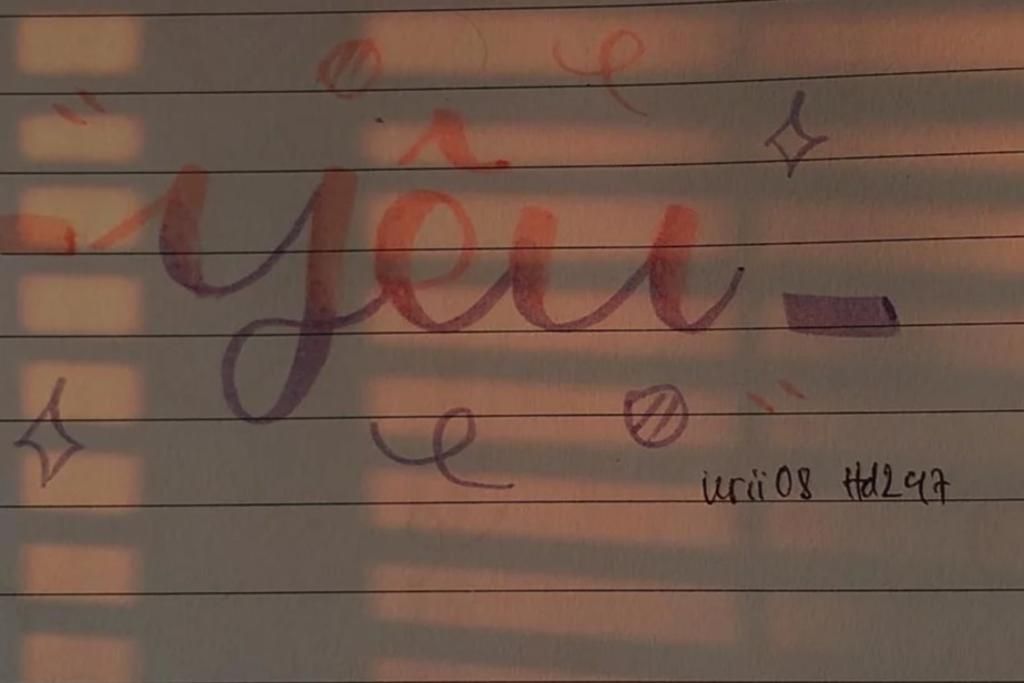 - yêu -
urii08 Hd297